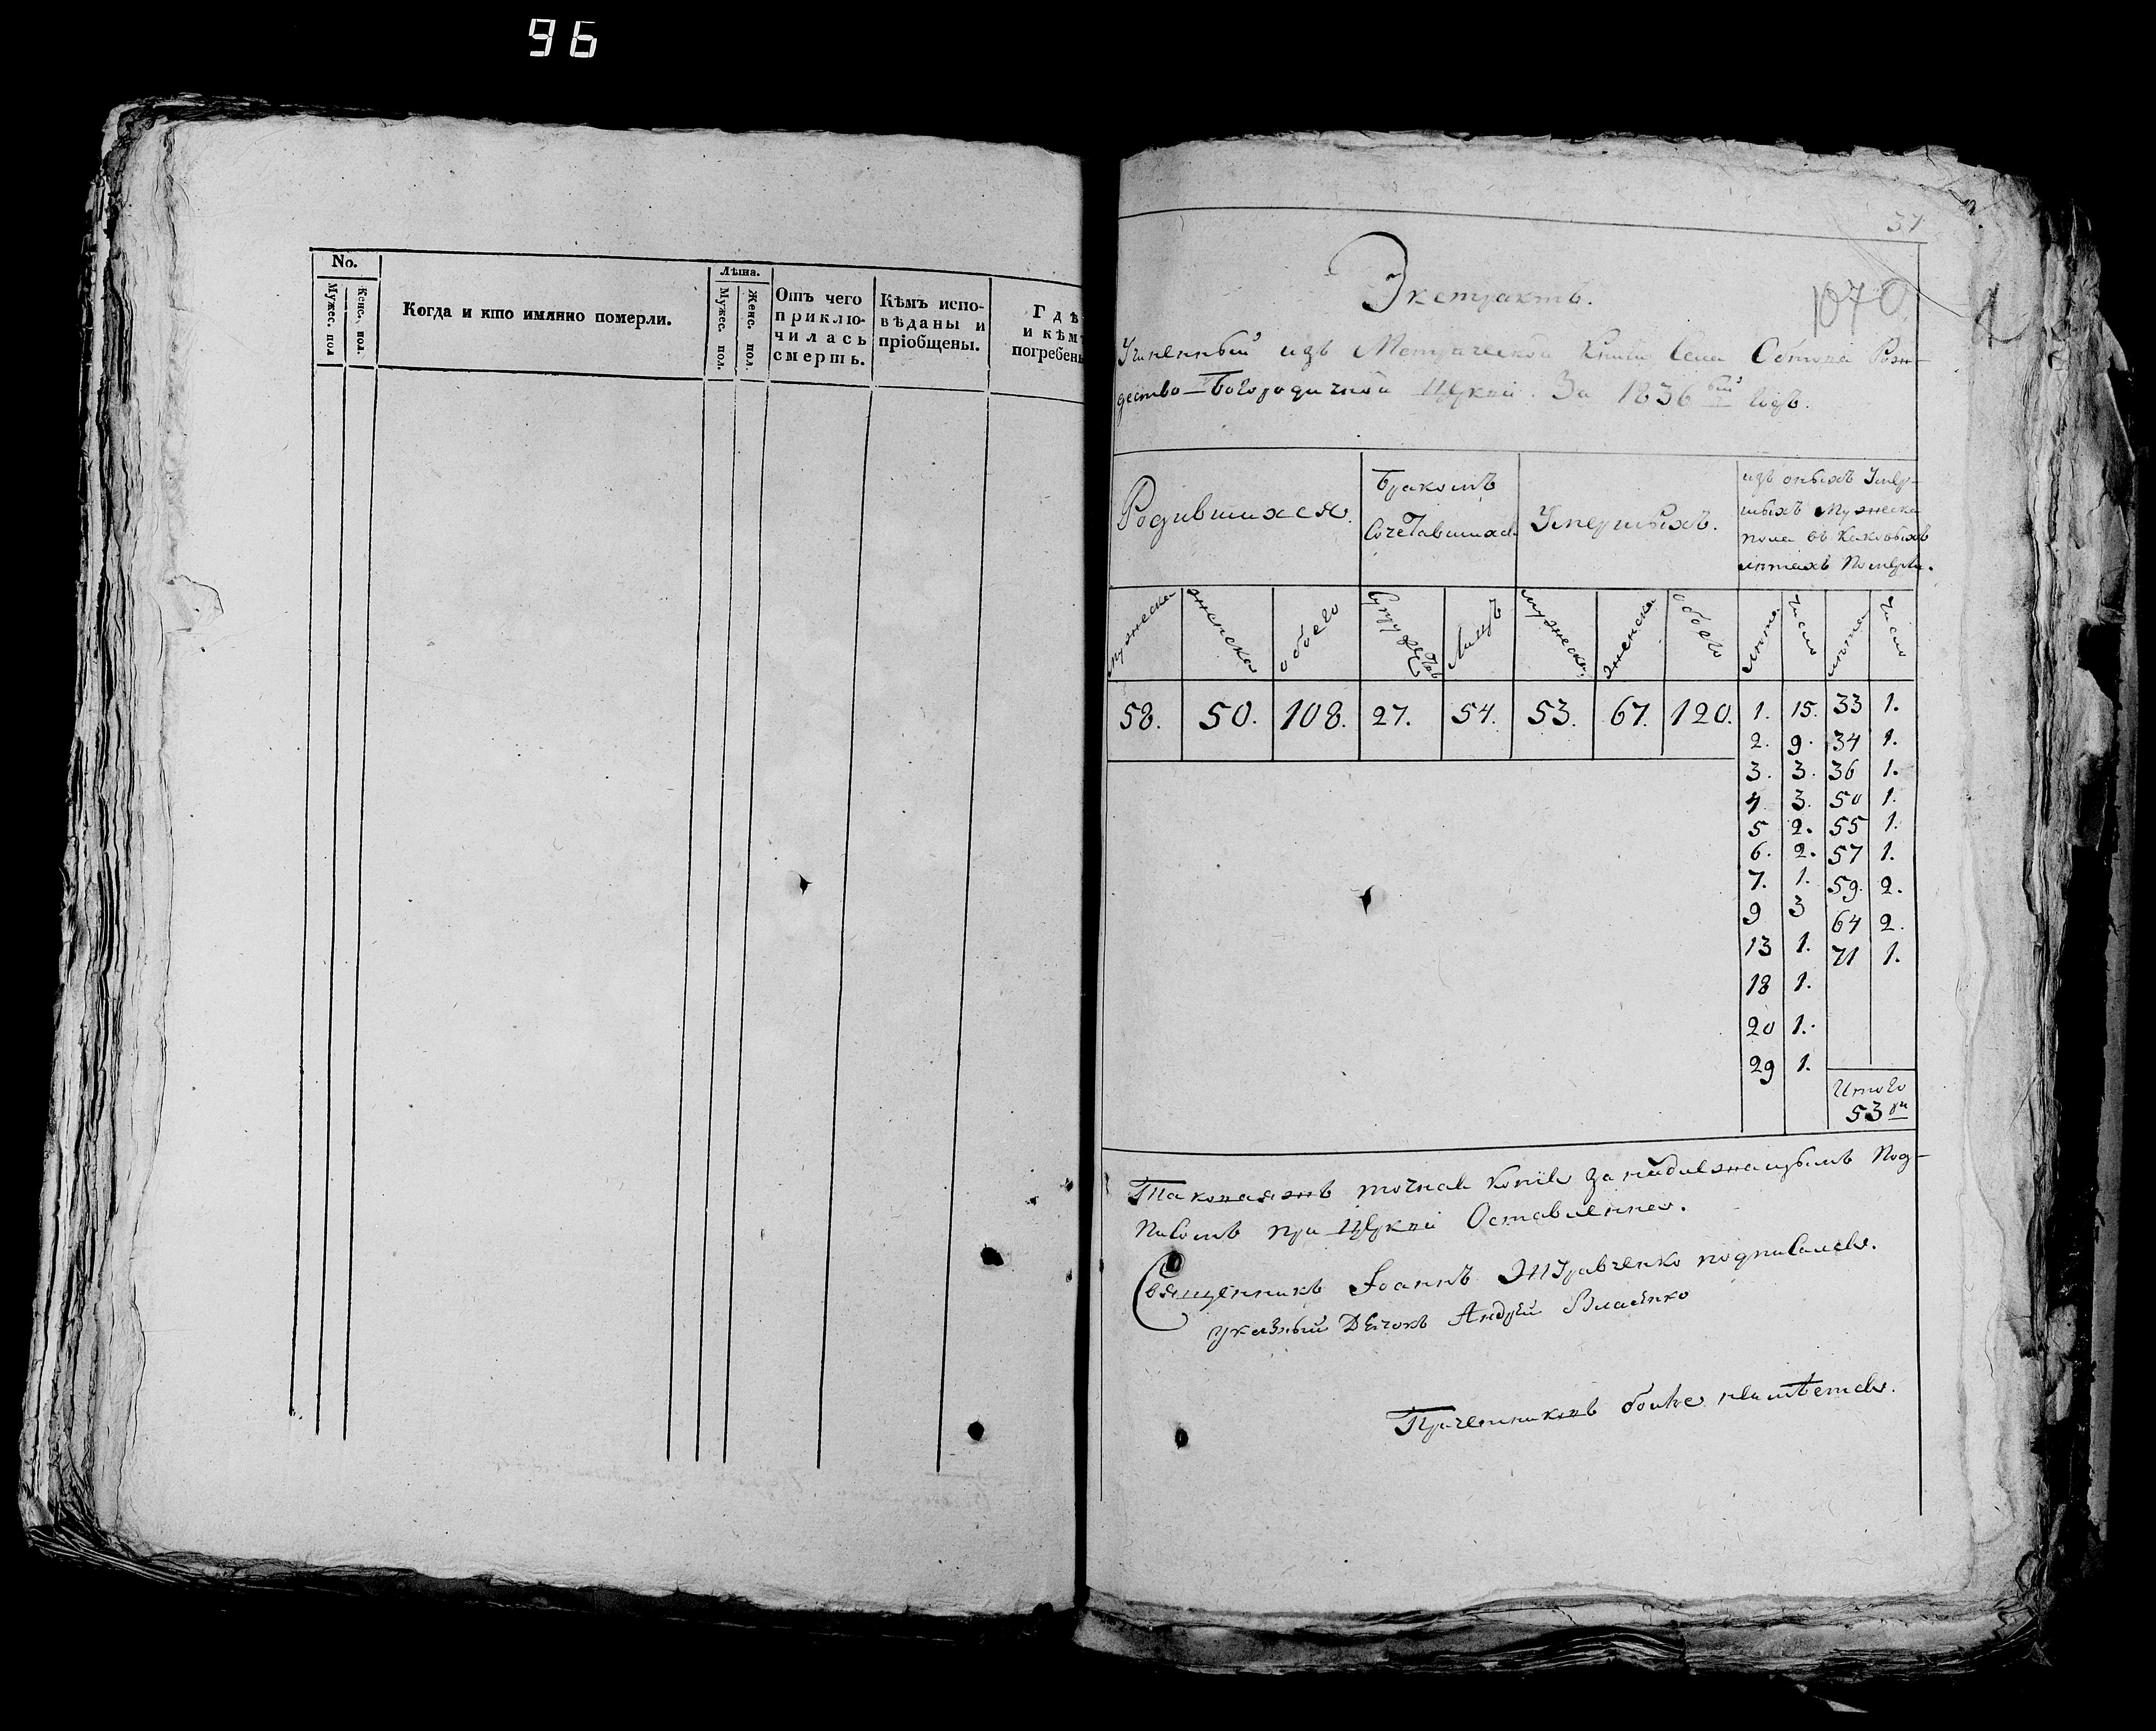 96
No.
Мужес. пол
Женс. пол.
Когда и кто имянно померли.
Лѣта.
Мужес. пол.
Женс. пол
Отъ чего
приклю-
чилась
смерть.
Кѣмъ испо-
вѣданы и
пріобщены.
Гдѣ
и кѣмъ
погребены
31
1070
Экстрактъ.
Учиненный изъ Метрической Книги Села Рож-
дество-Богородичной Церкви. За 1836 годъ.
Родившихся.
Бракомъ
Сочетавшихся
Умершихъ.
изъ оныхъ Умер-
шихъ Мужеска
пола въ каковыхъ
лѣтахъ Померли.
мужеска
женска
обоего
Супружествъ
Лицъ
мужеска
женска
обоего
лѣта
число
лѣта
число
58. 50. 108. 27. 54. 53. 67. 120. 1. 15. 33 1.
2. 9. 34 1.
3. 3. 36 1.
4. 3. 50 1.
5 2. 55 1.
6. 2. 57 1.
7. 1. 59. 2.
9 3 64 2.
13 1. 71 1.
18 1.
20 1.
29 1.
Итого
53
Таковаяжъ точная копія за надлежащымъ Под-
писомъ при Церкви Оставленна.
Священникъ Іоаннъ подписался.
указный Дьячокъ Андрей Власенко
Причетниковъ болѣе неимѣется.